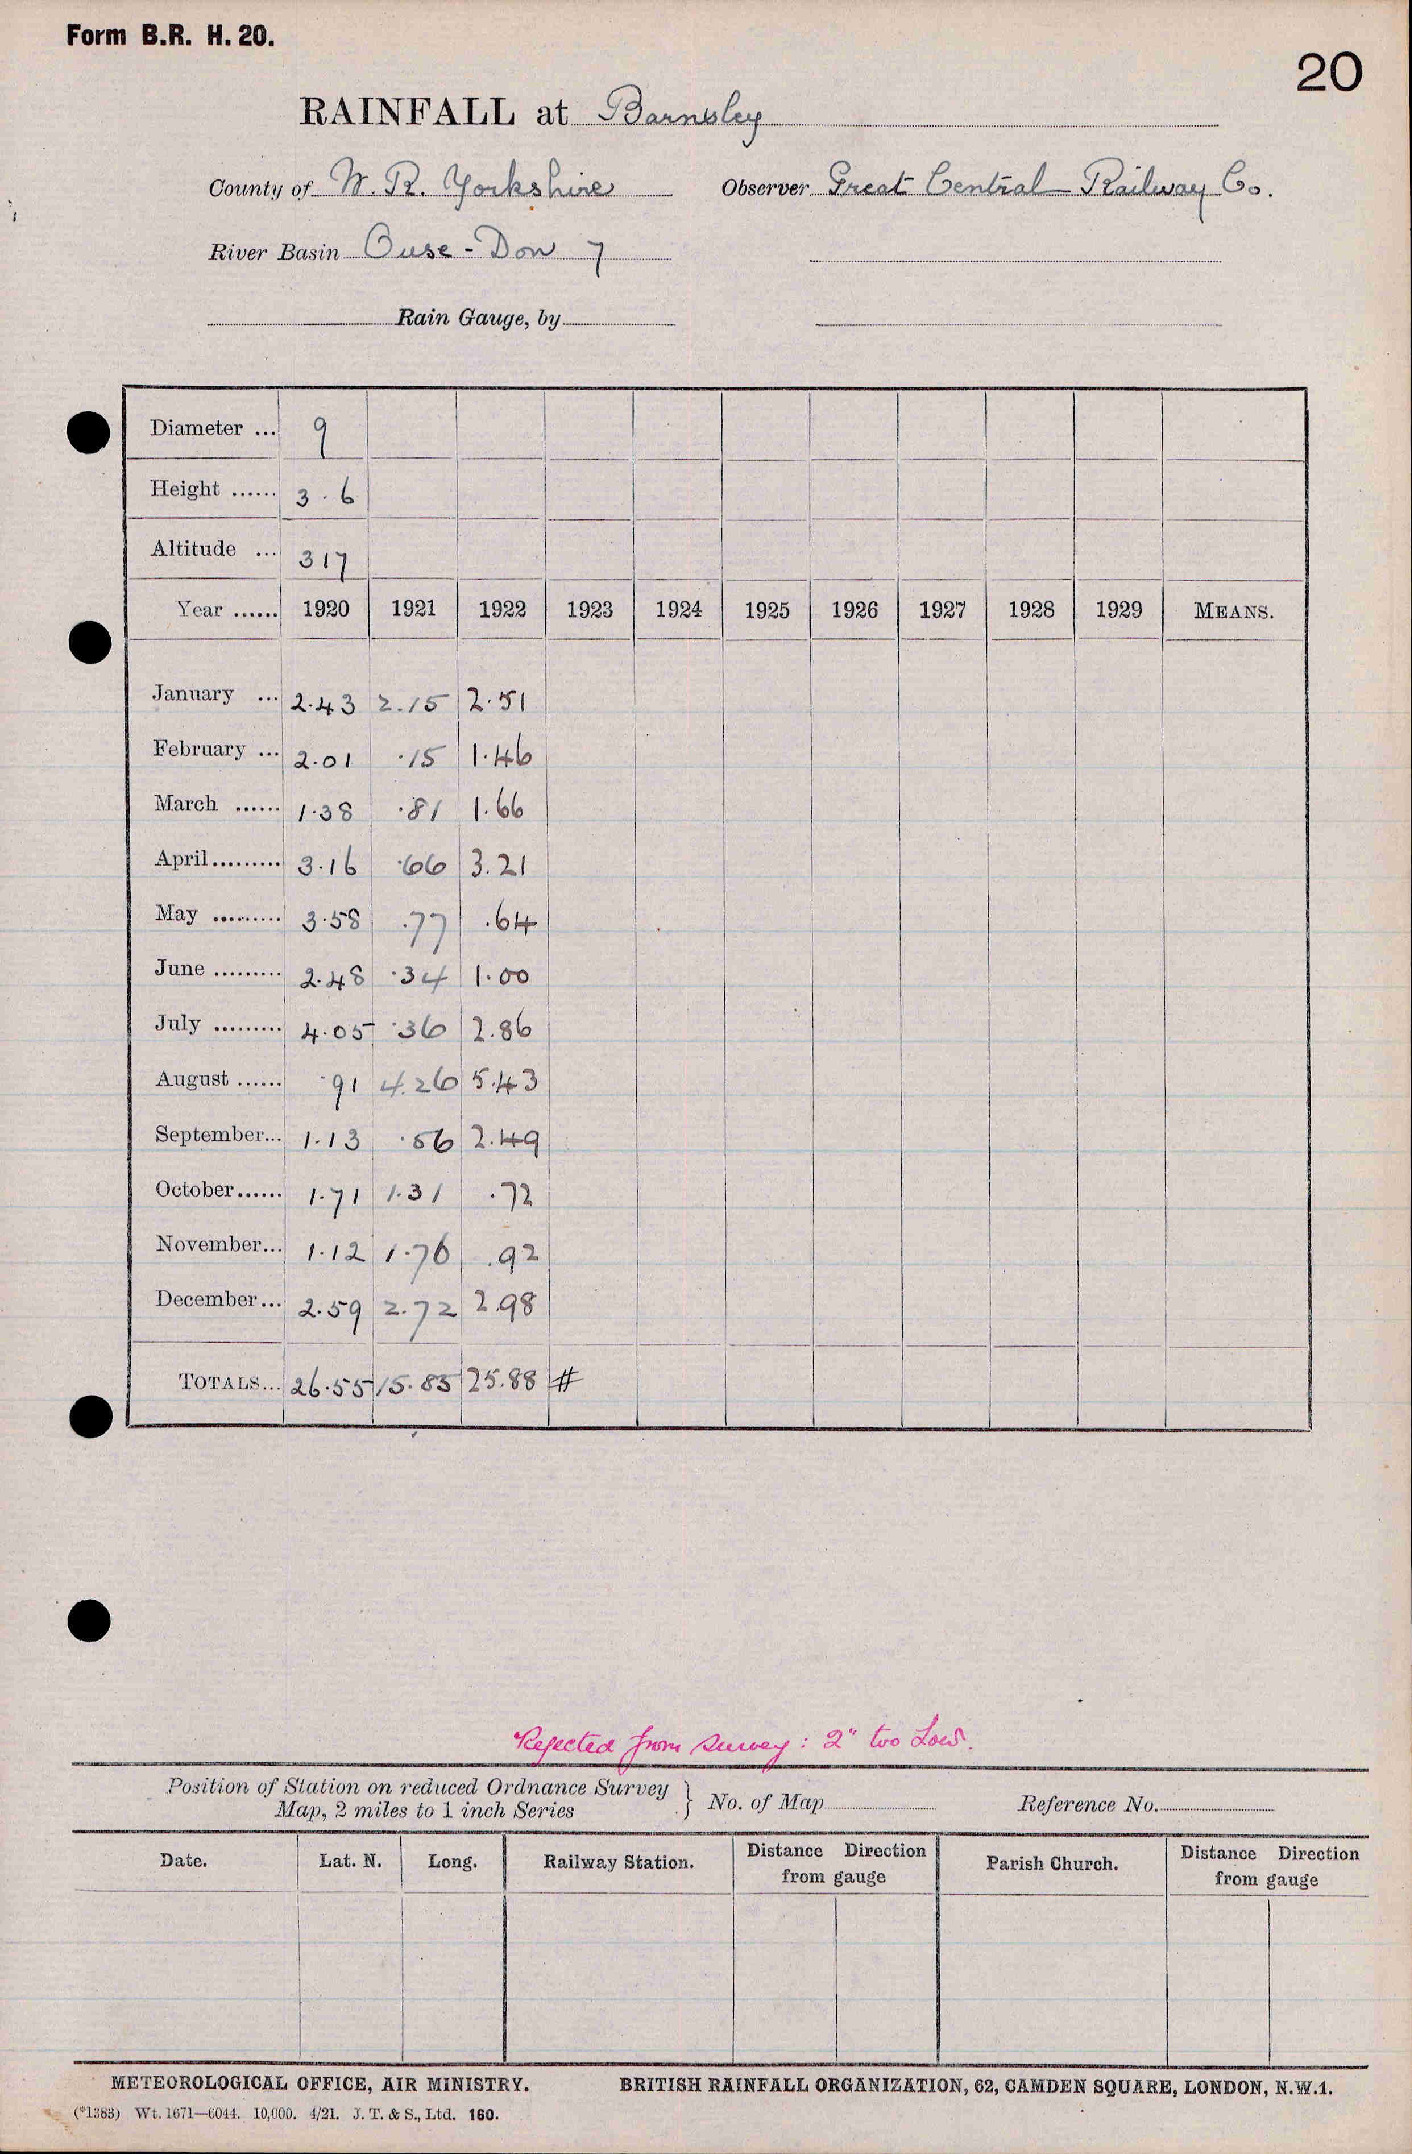 Form B.R. H. 20.
20
RAINFALL at Barnsley
County of W. R. Yorkshire Observer Great Central Railway Co.
River Basin Ouse - Don 7
Rain Gauge, by
Diameter ... 9
Height ...... 3.6
Altitude ... 317
Year ...... 1920 1921 1922 1923 1924 1925 1926 1927 1928 1929 MEANS.
January ... 2.43 2.15 2.51
February ... 2.01 .15 1.46
March ...... 1.38 .81 1.66
April......... 3.16 .66 3.21
May ......... 3.58 .77 .64
June ......... 2.48 .34 1.00
July ......... 4.05 .36 2.86
August ...... .91 4.26 5.43
September... 1.13 .56 2.49
October...... 1.71 1.31 .72
November... 1.12 1.76 .92
December... 2.59 2.72 2.98
TOTALS... 26.55 15.85 25.88 #
Rejected from survey : 2" too Low.
Position of Station on reduced Ordnance Survey
Map, 2 miles to 1 inch Series } No. of Map Reference No.
Date. Lat. N. Long. Railway Station. Distance Direction from gauge Parish Church. Distance Direction from gauge
METEOROLOGICAL OFFICE, AIR MINISTRY. BRITISH RAINFALL ORGANIZATION, 62, CAMDEN SQUARE, LONDON, N.W.1.
(*1383) Wt. 1671—6044. 10,000. 4/21. J. T. & S., Ltd. 160.